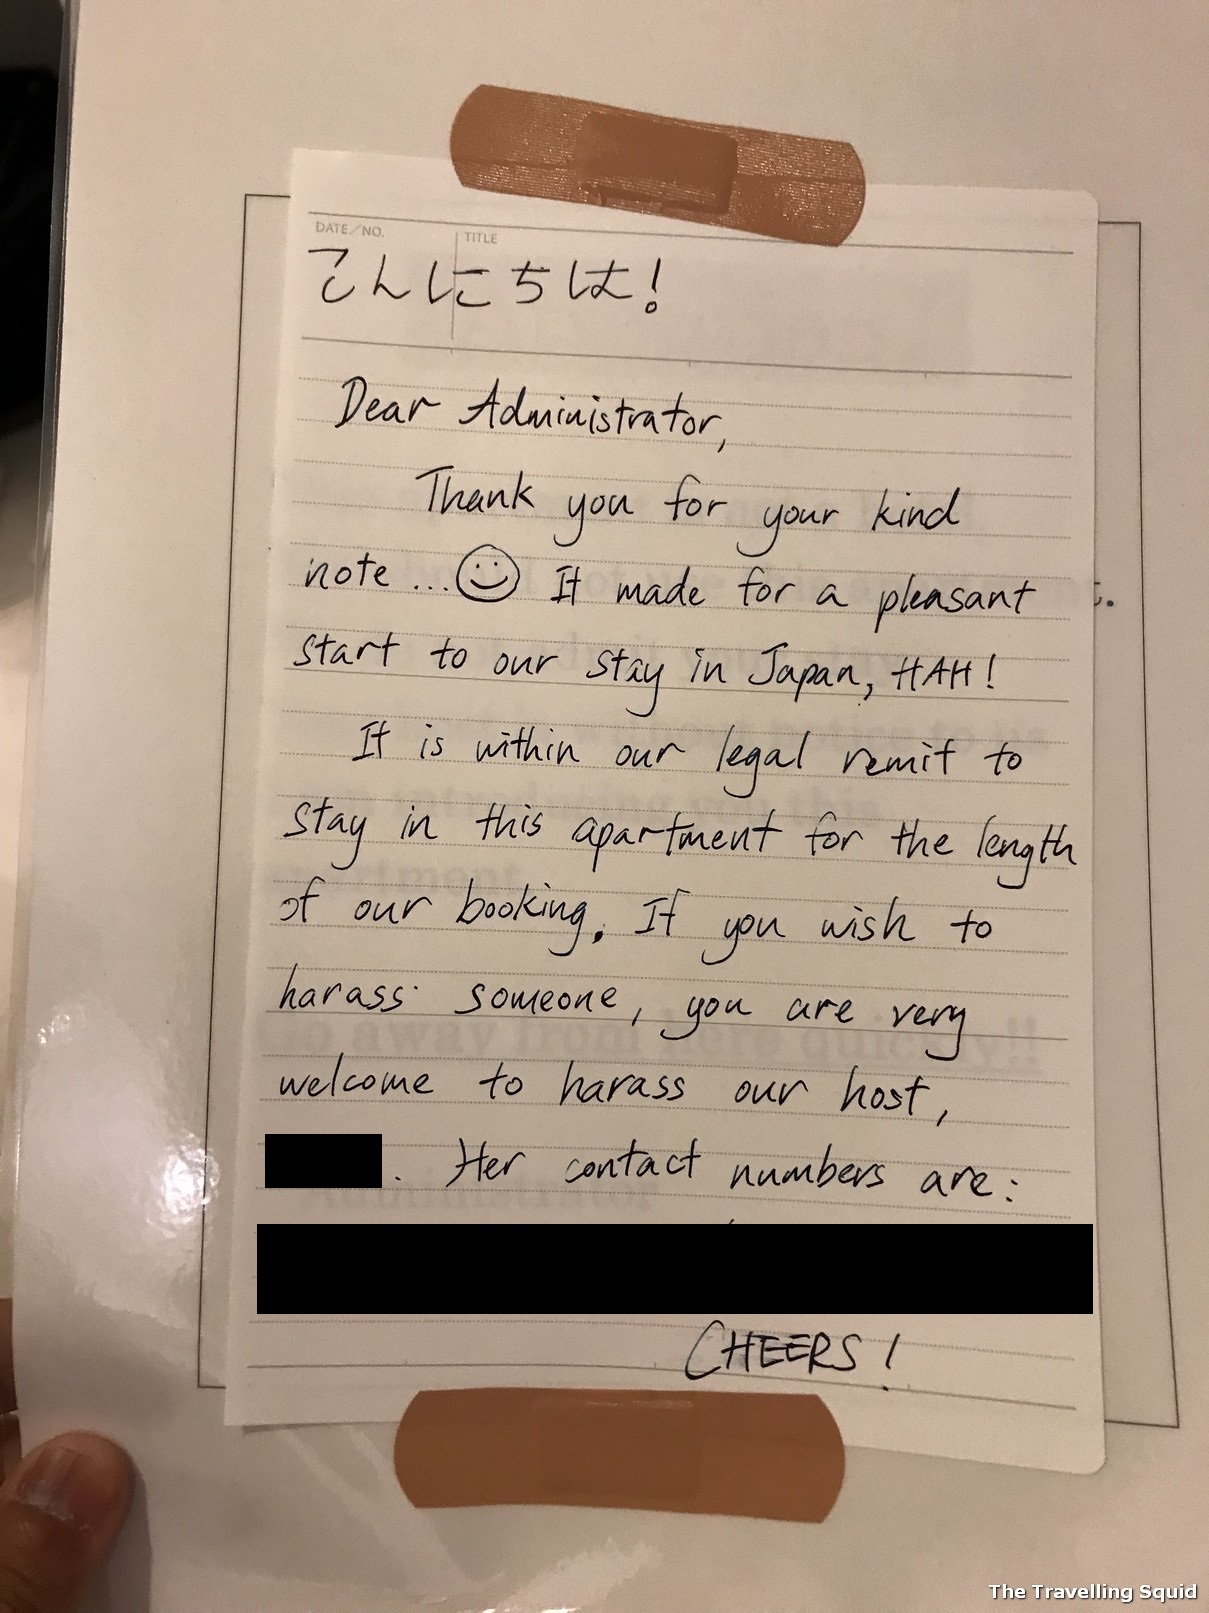 DATE/NO. TITLE
こんにちは!
Dear Administrator,
Thank you for your kind
note...☺ It made for a pleasant
start to our stay in Japan, HAH!
It is within our legal remit to
stay in this apartment for the length
of our booking. If you wish to
harass someone, you are very
welcome to harass our host,
. Her contact numbers are:
CHEERS!
The Travelling Squid